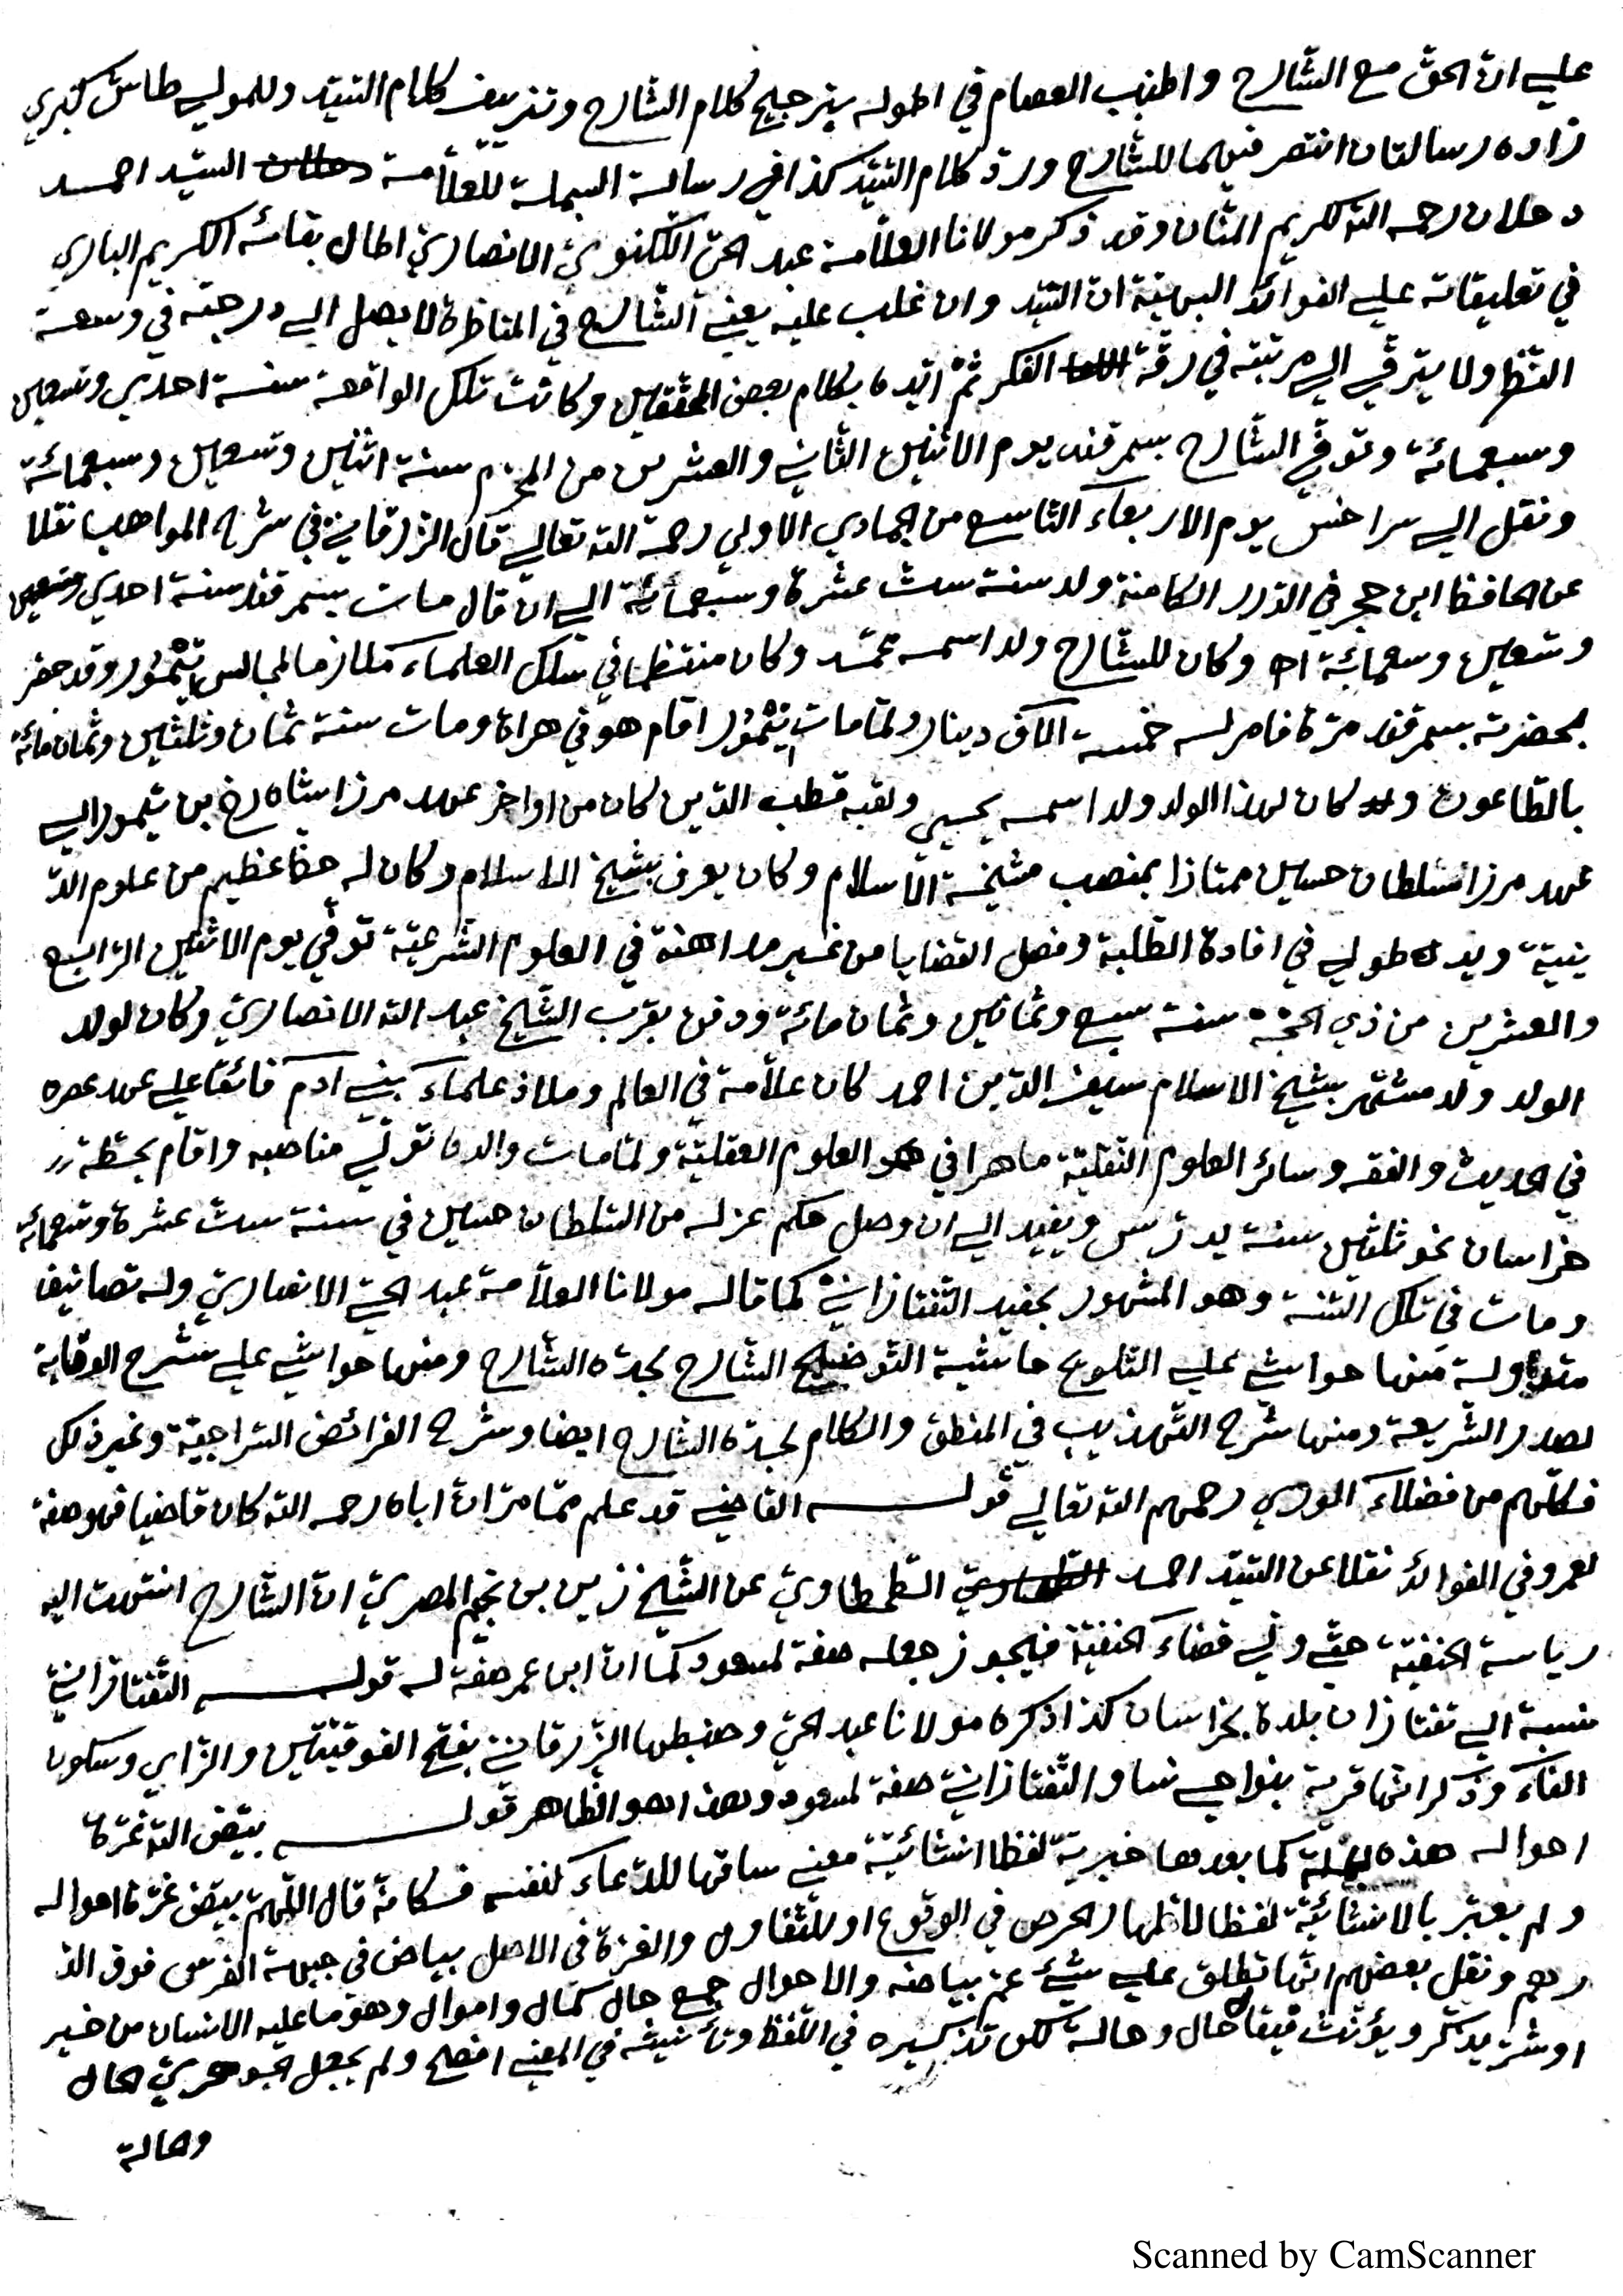 علي ان الحق مع الشارح واطنب العصام في اطوله بترجيح كلام الشارح وتزييف كلام السيد وللمولي طاش كبري
زاده رسالتان انتصر فيهما للشارح ورد كلام السيد كذا في رسالة البسملة للعلامة دحلان السيد احمد
دحلان رحمه الله الكريم المنان وقد ذكر مولانا العلامة عبد الحي اللكنوي الانصاري اطال بقائه الكريم الباري
في تعليقاته علي الفوائد البهية ان السيد وان غلب عليه يعني الشارح في المناظرة لا يصل الي درجته في وسعة
النظر ولا يترقي الي مرتبته في رقة الفكر ثم ايده بكلام بعض المحققين وكانت تلك الواقعة سنة احدي وتسعين
وسبعمائة وتوفي الشارح بسمرقند يوم الاثنين الثاني والعشرين من المحرم سنة اثنين وتسعين وسبعمائة
ونقل الي سراخس يوم الاربعاء التاسع من الجمادي الاولي رحمه الله تعالي قال الزرقاني في شرح المواهب نقلا
عن الحافظ ابن حجر في الدرر الكامنة ولد سنة ست عشرة وسبعمائة الي ان قال مات بسمرقند سنة احدي وتسعين
وتسعين وسبعمائة اه وكان للشارح ولد اسمه محمد وكان منتظما في سلك العلماء ملازما لمجالس تيمور وقد حضر
بحضرته بسمرقند مرة فامر له خمسة الاف دينار ولما مات تيمور اقام هو في هراة ومات سنة ثمان وثلثين وثمان مائة
بالطاعون وكان لهذا الولد ولد اسمه يحيي ولقبه قطب الدين كان من اواخر عهد مرزا شاه رخ بن تيمور الي
عهد مرزا سلطان حسين ممتازا بمنصب مشيخة الاسلام وكان يعرف بشيخ الاسلام وكان له حظ عظيم من علوم الد
ينية ويد طولي في افادة الطلبة وفصل القضايا من غير مداهنة في العلوم الشرعية توفي يوم الاثنين الرابع
والعشرين من ذي الحجة سنة سبع وثمانين وثمان مائة ودفن بقرب الشيخ عبد الله الانصاري وكان لولد
الولد ولد مشتهر بشيخ الاسلام سيف الدين احمد كان علامة في العالم وملاذ علماء بني ادم فائقا علي عهد عصره
في الحديث والفقه وسائر العلوم النقلية ماهرا في العلوم العقلية ولما مات والده تولي مناصبه واقام بخطة
خراسان نحو ثلثين سنة يدرس ويفيد الي ان وصل حكم عزله من السلطان حسين في سنة ست عشرة وتسعمائة
ومات في تلك السنة وهو المشهور بحفيد التفتازاني كما قاله مولانا العلامة عبد الحي الانصاري وله تصانيف
متداولة منها حواشي علي التلويح حاشية التوضيح الشارح لجده الشارح ومنها حواشي علي شرح الوقاية
لصدر الشريعة ومنها شرح التهذيب في المنطق والكلام لجده الشارح ايضا وشرح الفرائض السراجية وغير ذلك
فكلهم من فضلاء الوري رحمهم الله تعالي قوله القاضي قد علم مما مر ان اباه رحمه الله كان قاضيا فهو صفة
لعمر وفي الفوائد نقلا عن السيد احمد الطحطاوي عن الشيخ زين بن نجيم المصري ان الشارح انتهت اليه
رياسة الحنفية حتي ولي قضاء الحنفية فيجوز جعله صفة لمسعود كما ان ابن عمر صفة له قوله التفتازاني
نسبة الي تفتازان بلدة بخراسان كذا ذكره مولانا عبد الحي وضبطها الزرقاني بفتح الفوقيتين والزاي وسكون
الفاء وذكر انها قرية بنواحي نسا والتفتازاني صفة لمسعود وهذا هو الظاهر قوله بيض الله غرة
احواله هذه الجملة كما بعدها خبرية لفظا انشائية معني ساقها للدعاء لنفسه فكانه قال اللهم بيض غرة احواله
ولم يعبر بالانشائية لفظا لاظهار الحرص في الوقوع او للتفاول والغرة في الاصل بياض في جبهة الفرس فوق الد
رهم ونقل بعضهم انها تطلق علي شئ عم بياضه والاحوال جمع حال كمال واموال وهو ما عليه الانسان من خير
او شر يذكر ويؤنث فيقال حال وحالة لكن تذكيره في اللفظ وتأنيثه في المعني افصح ولم يجعل الجوهري الحال
وحالة
Scanned by CamScanner